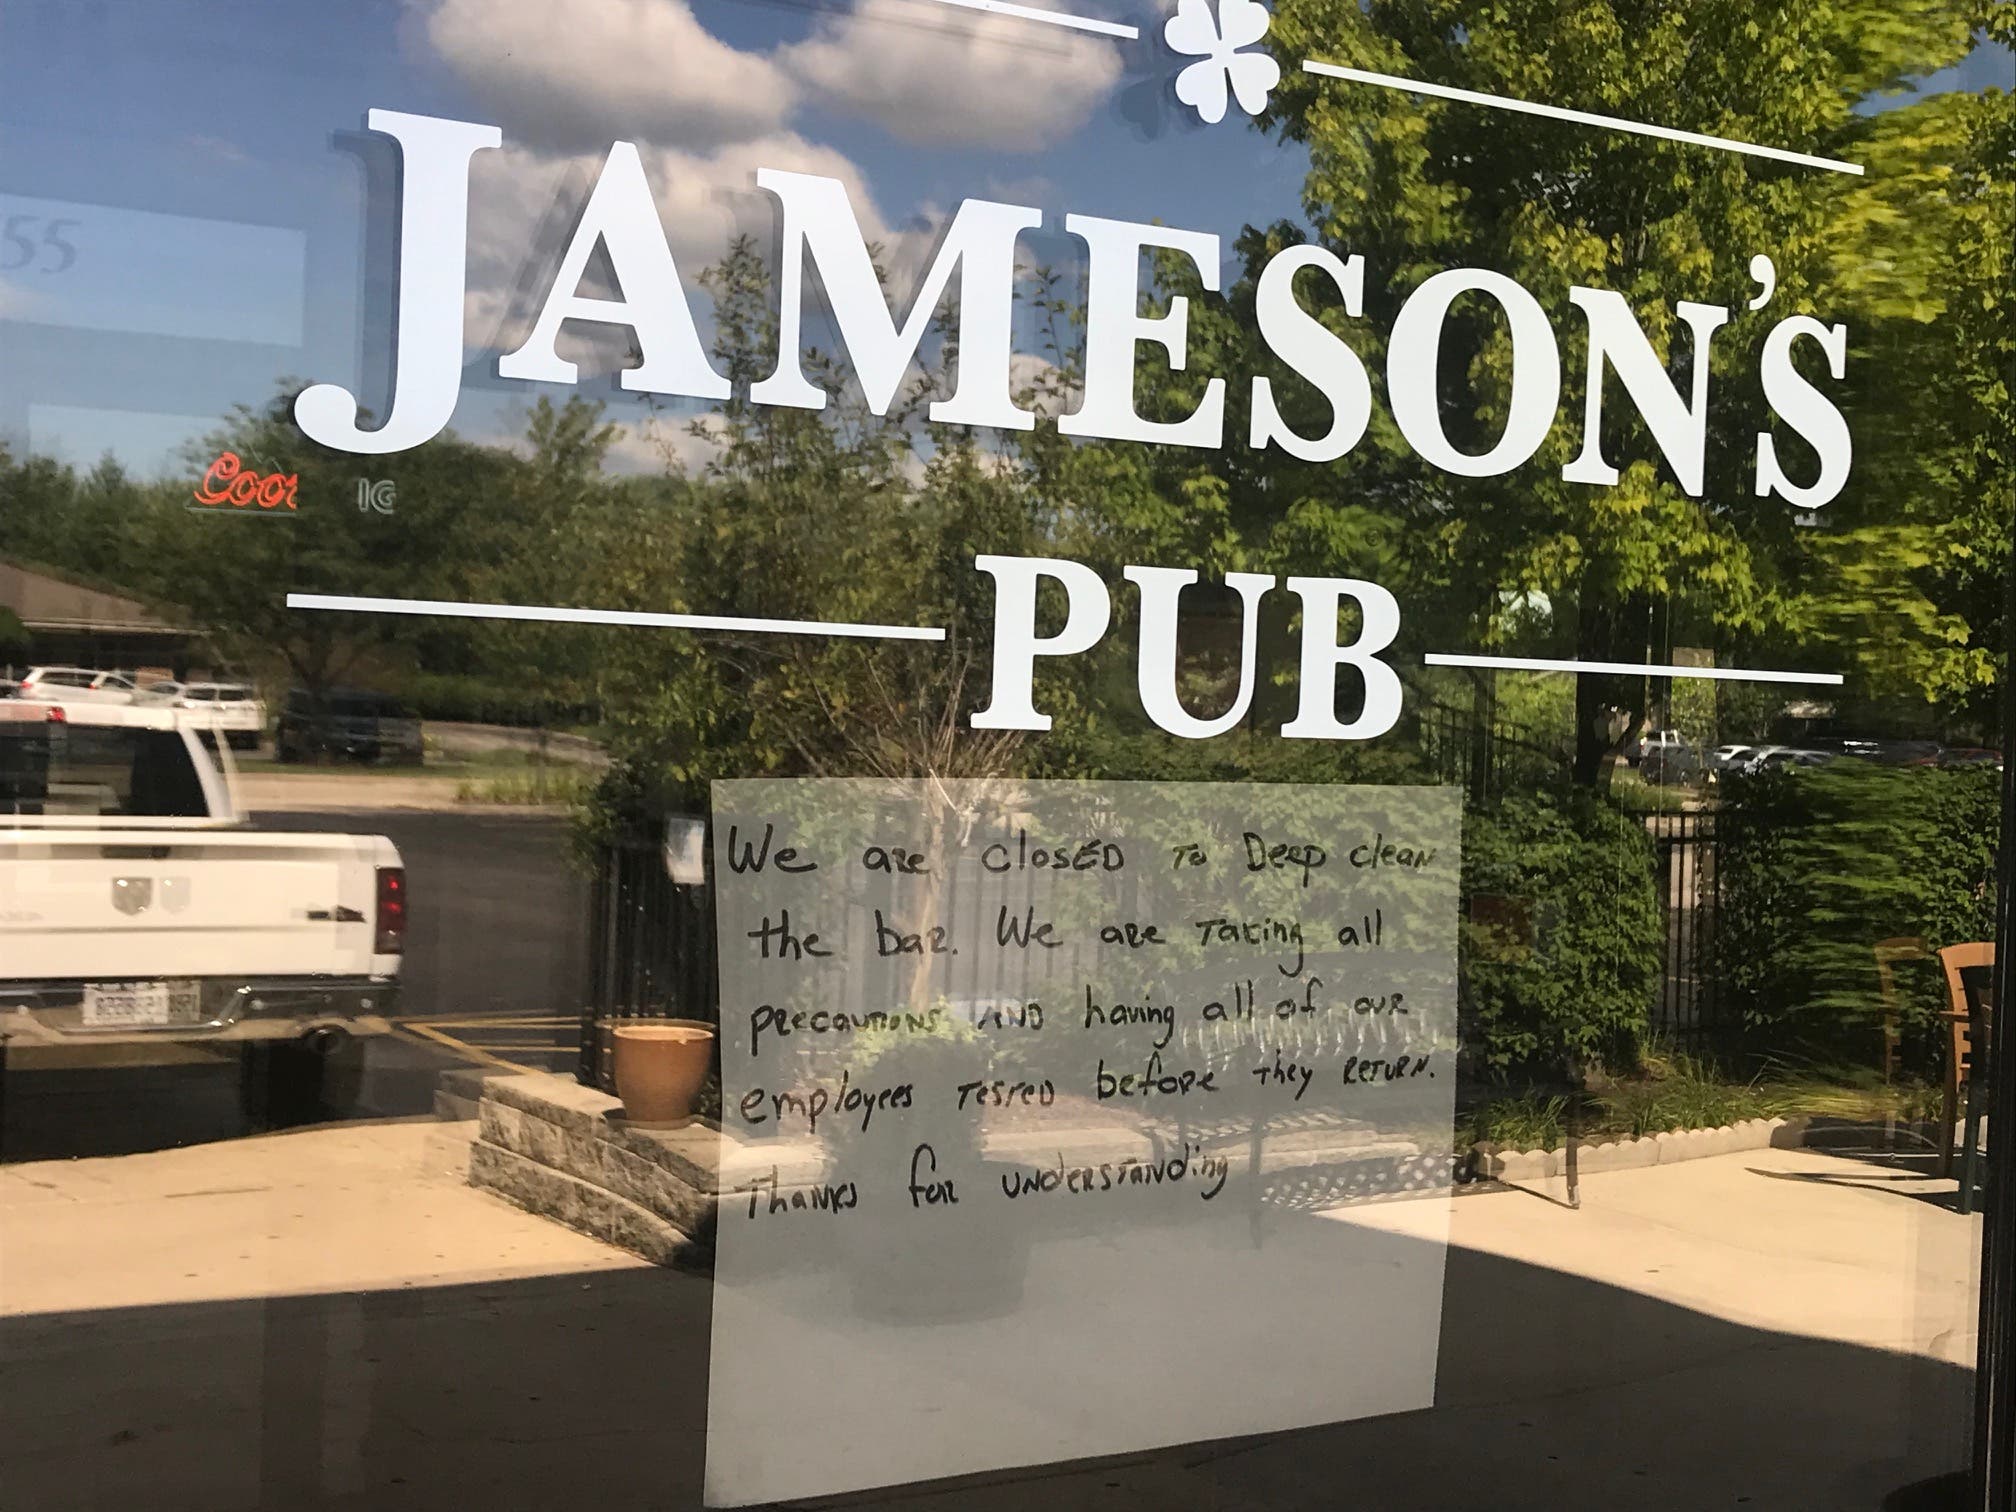 JAMESON'S
PUB
55
Coor
We are closED To Deep clean
the bar. We are Taking all
precautions AND having all of our
employees TesTeD before They RETURN.
Thanks for unDersTanding